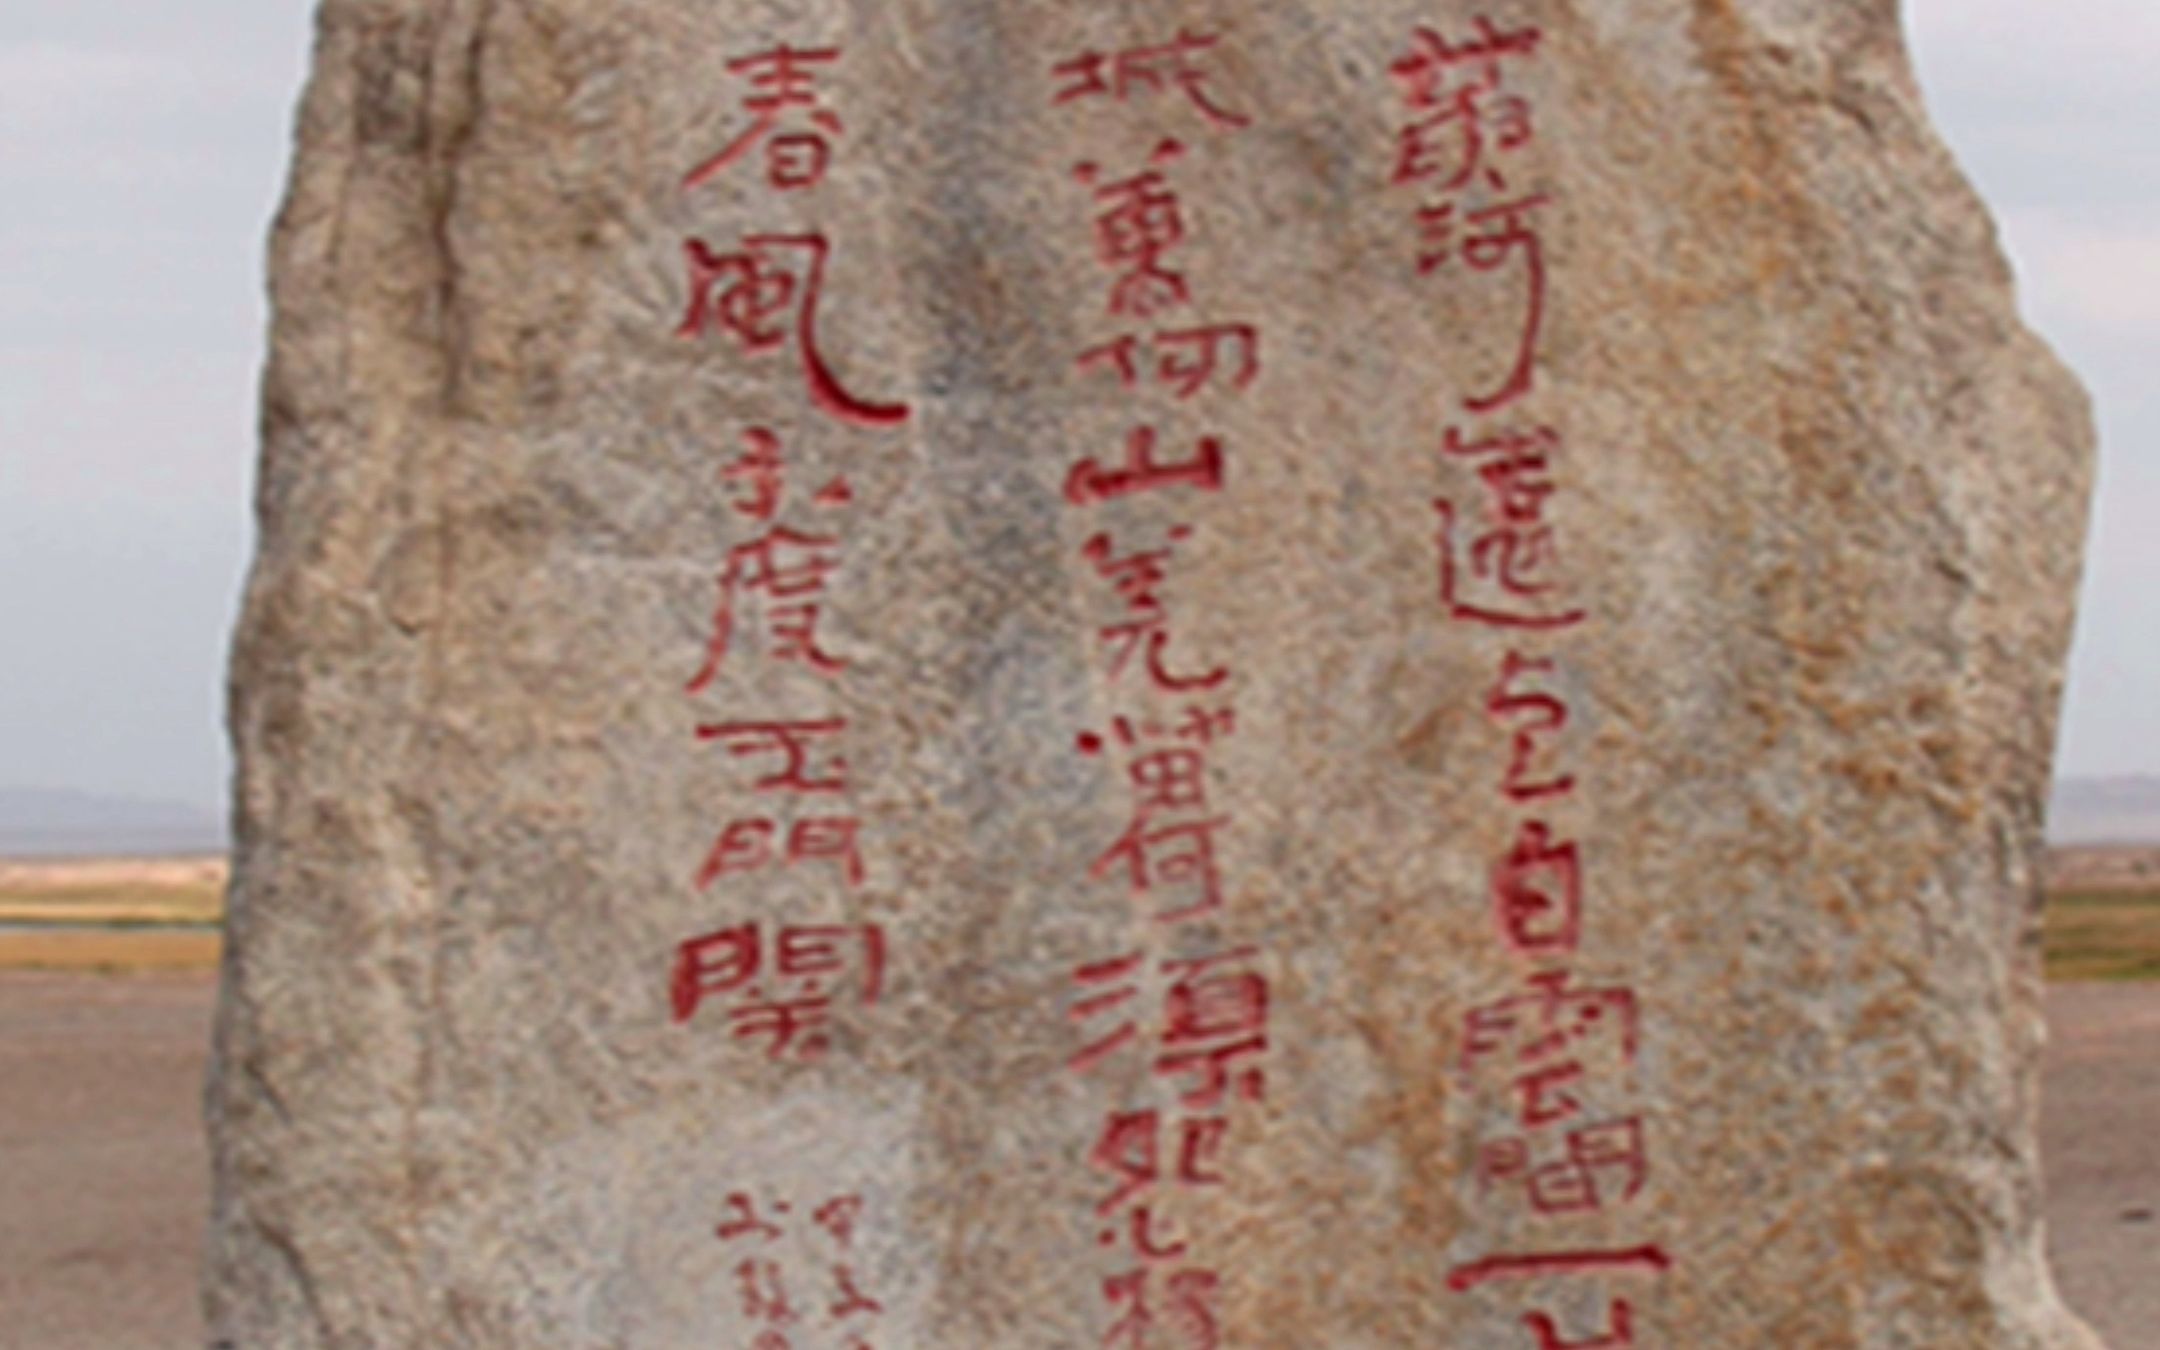 黃河遠上白雲間一
城萬仞山羌笛何須怨楊
春風不度玉門關